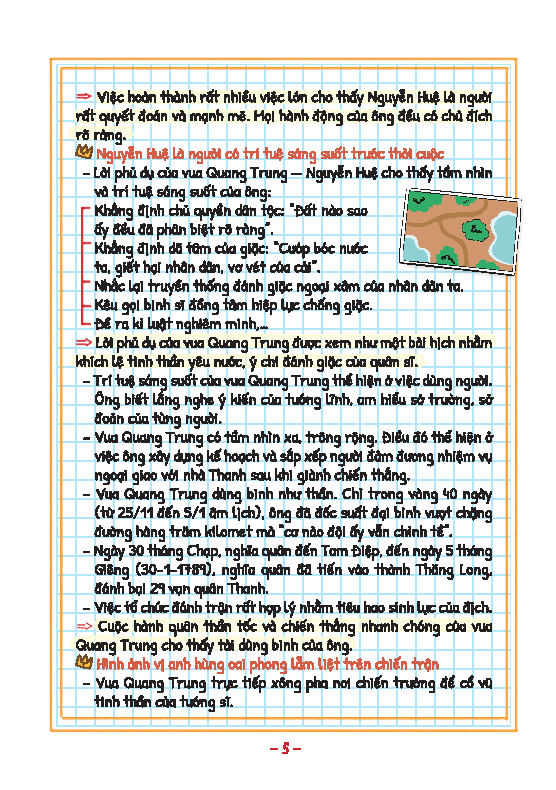 ⇒ Việc hoàn thành rất nhiều việc lớn cho thấy Nguyễn Huệ là người
rất quyết đoán và mạnh mẽ. Mọi hành động của ông đều có chủ đích
rõ ràng.
Nguyễn Huệ là người có trí tuệ sáng suốt trước thời cuộc
- Lời phủ dụ của vua Quang Trung – Nguyễn Huệ cho thấy tầm nhìn
và trí tuệ sáng suốt của ông:
Khẳng định chủ quyền dân tộc: "Đất nào sao
ấy đều đã phân biệt rõ ràng".
Khẳng định dã tâm của giặc: "Cướp bóc nước
ta, giết hại nhân dân, vơ vét của cải".
Nhắc lại truyền thống đánh giặc ngoại xâm của nhân dân ta.
Kêu gọi binh sĩ đồng tâm hiệp lực chống giặc.
Đề ra kỉ luật nghiêm minh,...
⇒ Lời phủ dụ của vua Quang Trung được xem như một bài hịch nhằm
khích lệ tinh thần yêu nước, ý chí đánh giặc của quân sĩ.
- Trí tuệ sáng suốt của vua Quang Trung thể hiện ở việc dùng người.
Ông biết lắng nghe ý kiến của tướng lĩnh, am hiểu sở trường, sở
đoản của từng người.
- Vua Quang Trung có tầm nhìn xa, trông rộng. Điều đó thể hiện ở
việc ông xây dựng kế hoạch và sắp xếp người đảm đương nhiệm vụ
ngoại giao với nhà Thanh sau khi giành chiến thắng.
- Vua Quang Trung dùng binh như thần. Chỉ trong vòng 40 ngày
(từ 25/11 đến 5/1 âm lịch), ông đã đốc suất đại binh vượt chặng
đường hàng trăm kilomet mà "cơ nào đội ấy vẫn chỉnh tề".
- Ngày 30 tháng Chạp, nghĩa quân đến Tam Điệp, đến ngày 5 tháng
Giêng (30-1-1789), nghĩa quân đã tiến vào thành Thăng Long,
đánh bại 29 vạn quân Thanh.
- Việc tổ chức đánh trận rất hợp lý nhằm tiêu hao sinh lực của địch.
⇒ Cuộc hành quân thần tốc và chiến thắng nhanh chóng của vua
Quang Trung cho thấy tài dùng binh của ông.
Hình ảnh vị anh hùng oai phong lẫm liệt trên chiến trận
- Vua Quang Trung trực tiếp xông pha nơi chiến trường để cổ vũ
tinh thần của tướng sĩ.
- 5 -